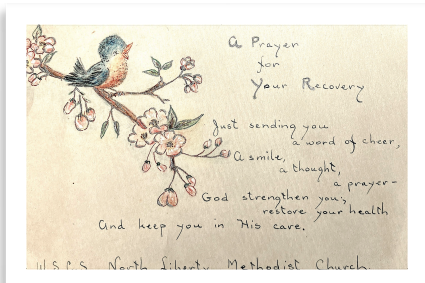 A Prayer
for
Your Recovery
Just sending you
a word of cheer,
A smile,
a thought,
a prayer-
God strengthen you,
restore your health
And keep you in His care.
W.S.C.S. North Liberty Methodist Church